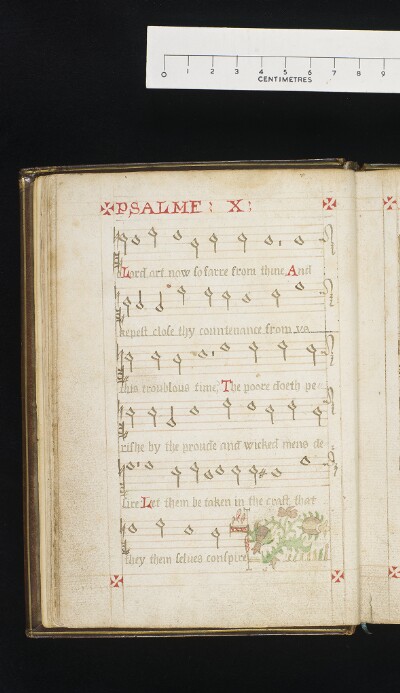 0 1 2 3 4 5 6 7 8 9
CENTIMETRES
PSALME: X:
Lord art now so farre from thine, And
kepest close thy countenance from va
this troublous time, The poore doeth pe
rishe by the proude and wicked mens de
sire Let them be taken in the craft that
they them selves conspire